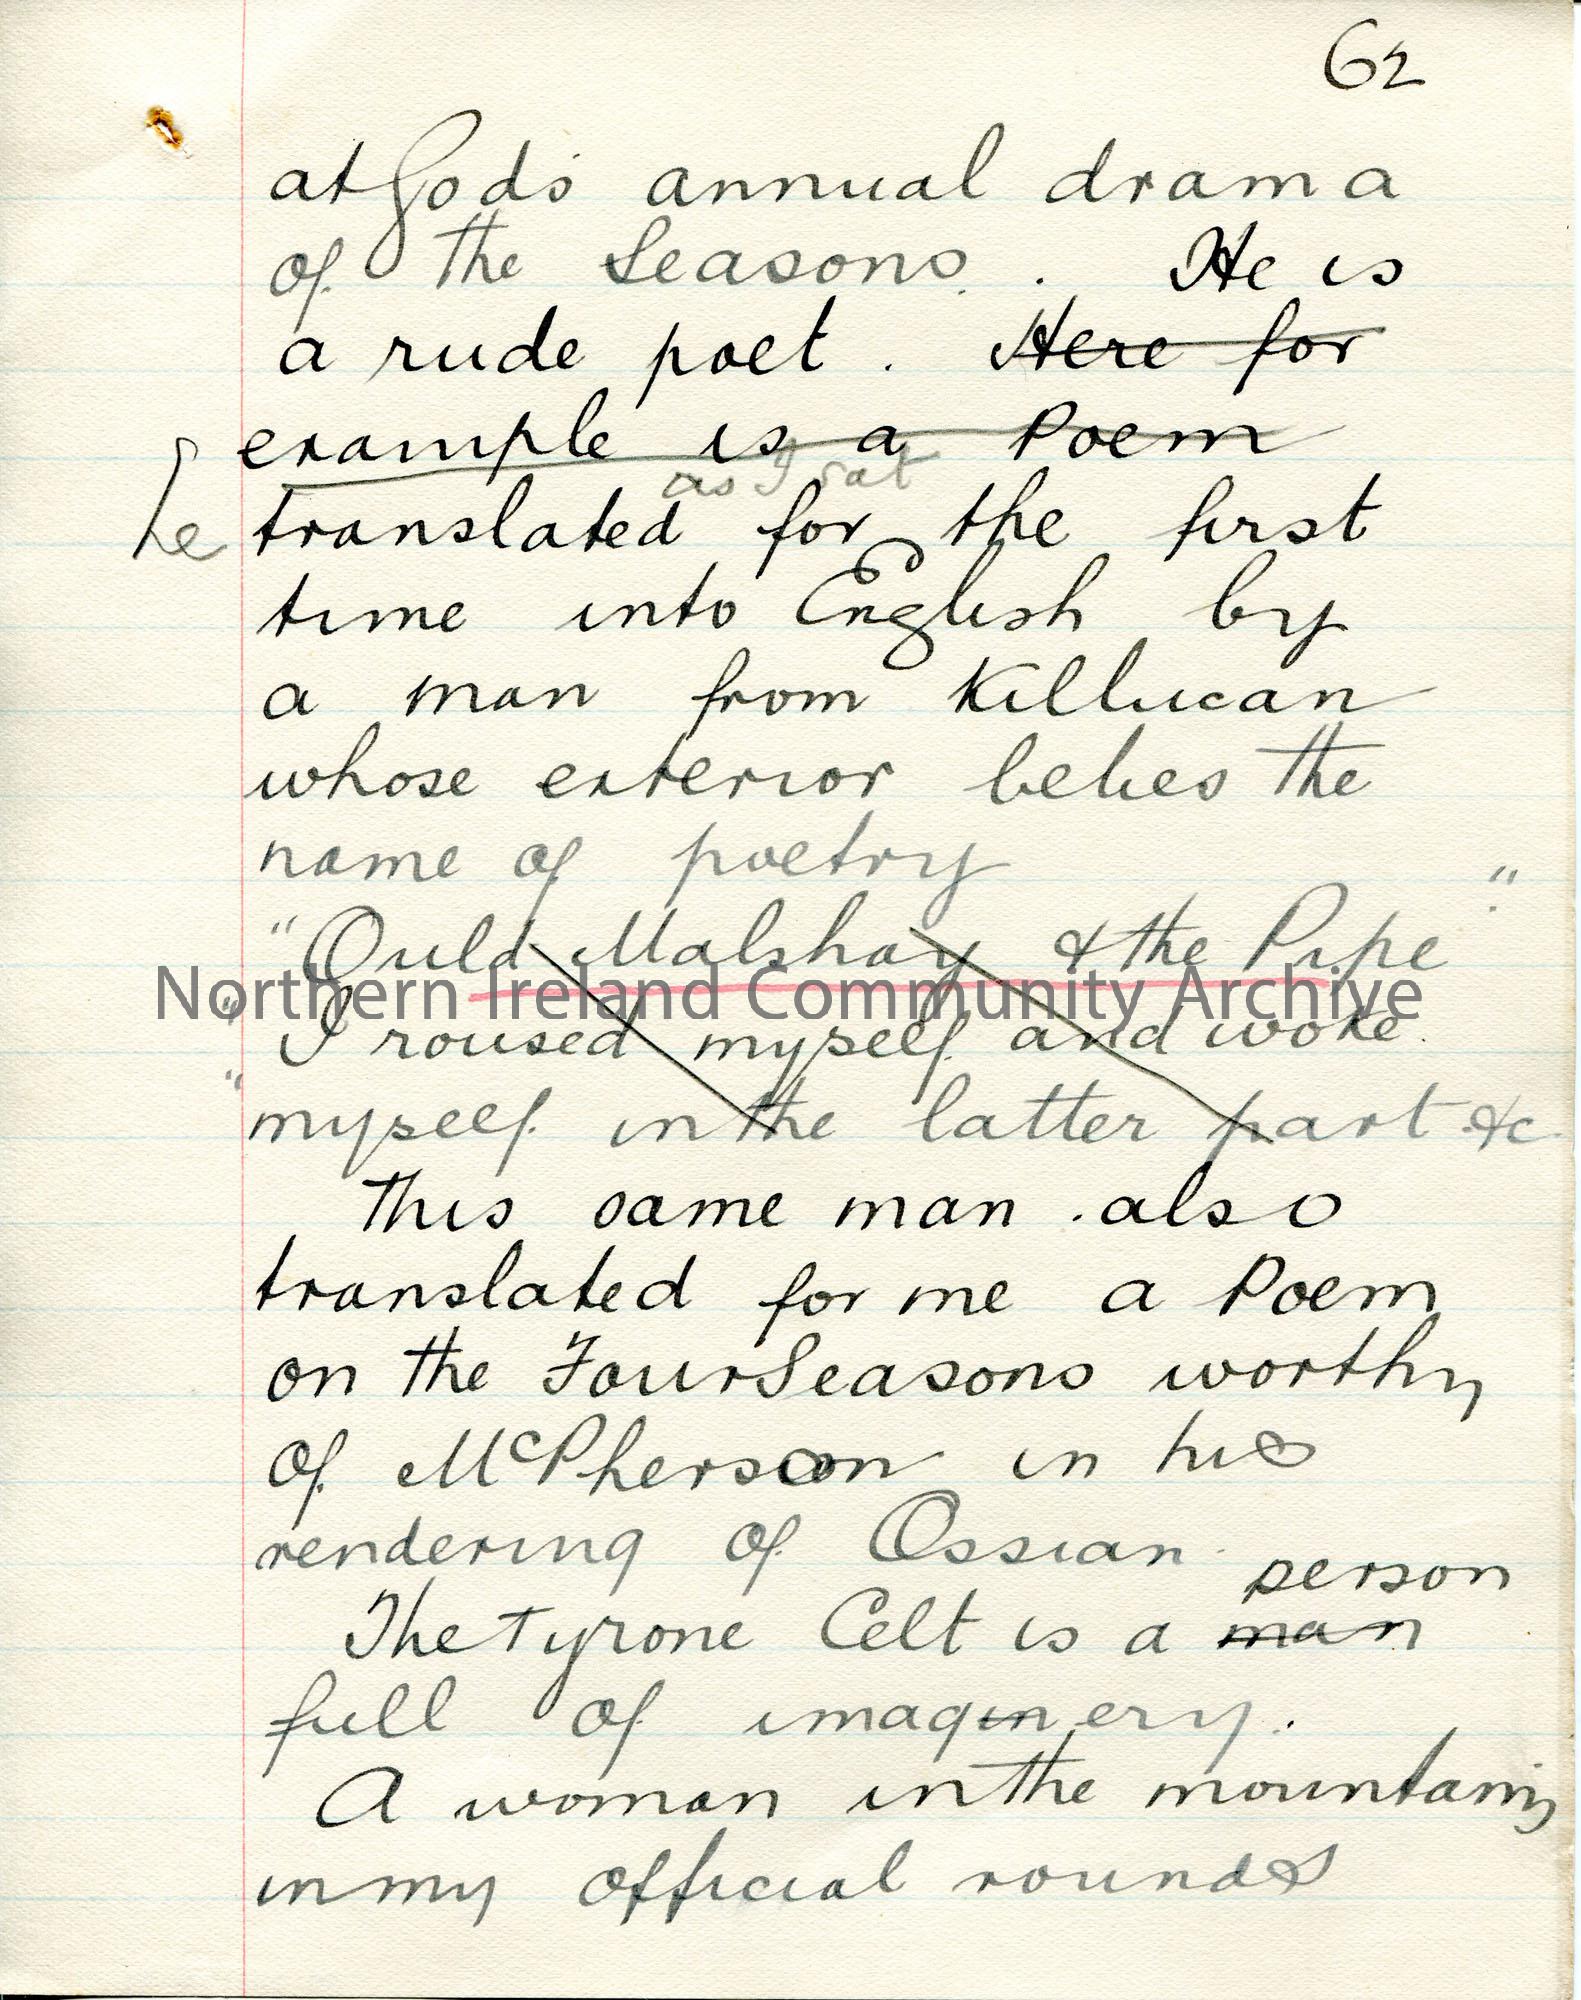 62
at God's annual drama
of the Seasons. He is
a rude poet. Here for
example is a Poem
as I sat
he translated for the first
time into English by
a man from Killucan
whose exterior belies the
name of poetry
"Ould Malshay & the Pipe".
"I roused myself and woke
"myself in the latter part &c
This same man also
translated for me a Poem
on the Four Seasons worthy
of McPherson in his
rendering of Ossian.
person
The Tyrone Celt is a man
full of imaginery.
A woman in the mountains
in my official rounds
Northern Ireland Community Archive